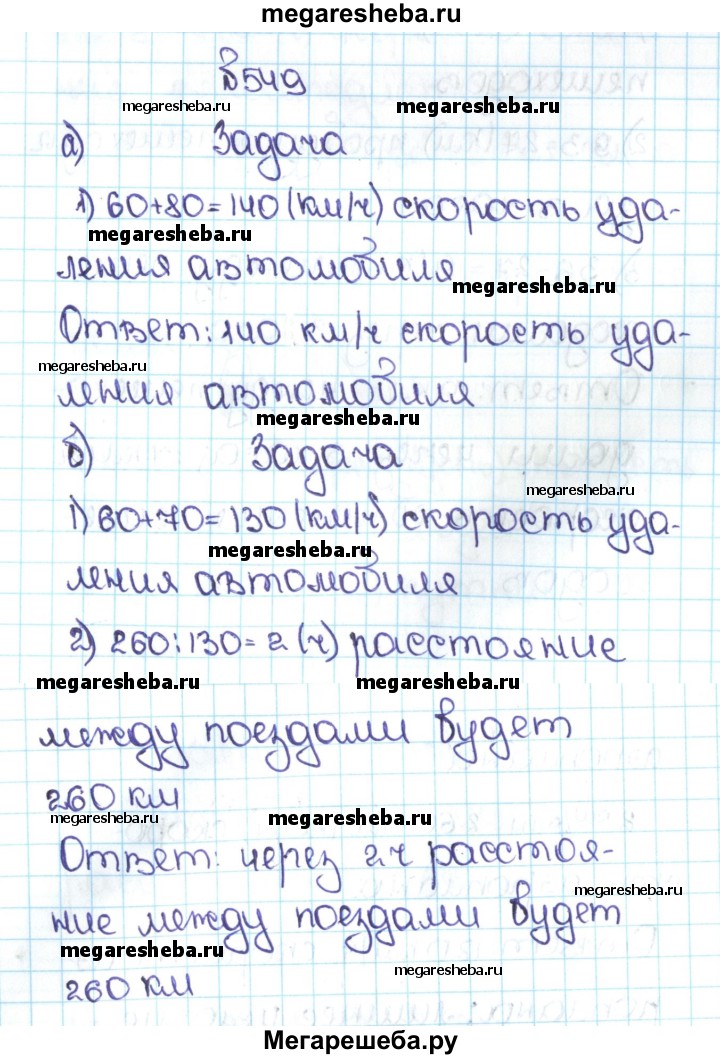 megaresheba.ru
№549
megaresheba.ru megaresheba.ru
а) Задача
1) 60+80=140 (км/ч) скорость уда-
megaresheba.ru
ления автомобиля
megaresheba.ru
Ответ: 140 км/ч скорость уда-
megaresheba.ru
ления автомобиля
megaresheba.ru
б) Задача
megaresheba.ru
1) 60+70=130 (км/ч) скорость уда-
megaresheba.ru
ления автомобиля
2) 260:130=2 (ч) расстояние
megaresheba.ru megaresheba.ru
между поездами будет
260 км
megaresheba.ru megaresheba.ru
Ответ: через 2 ч расстоя-
megaresheba.ru
ние между поездами будет
megaresheba.ru
megaresheba.ru
260 км
Мегарешеба.ру